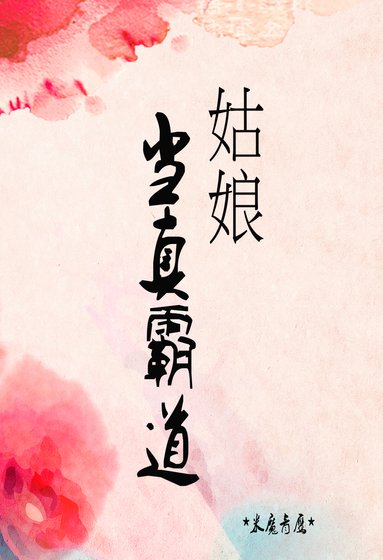 姑娘
当真霸道
*米魔青鹰*